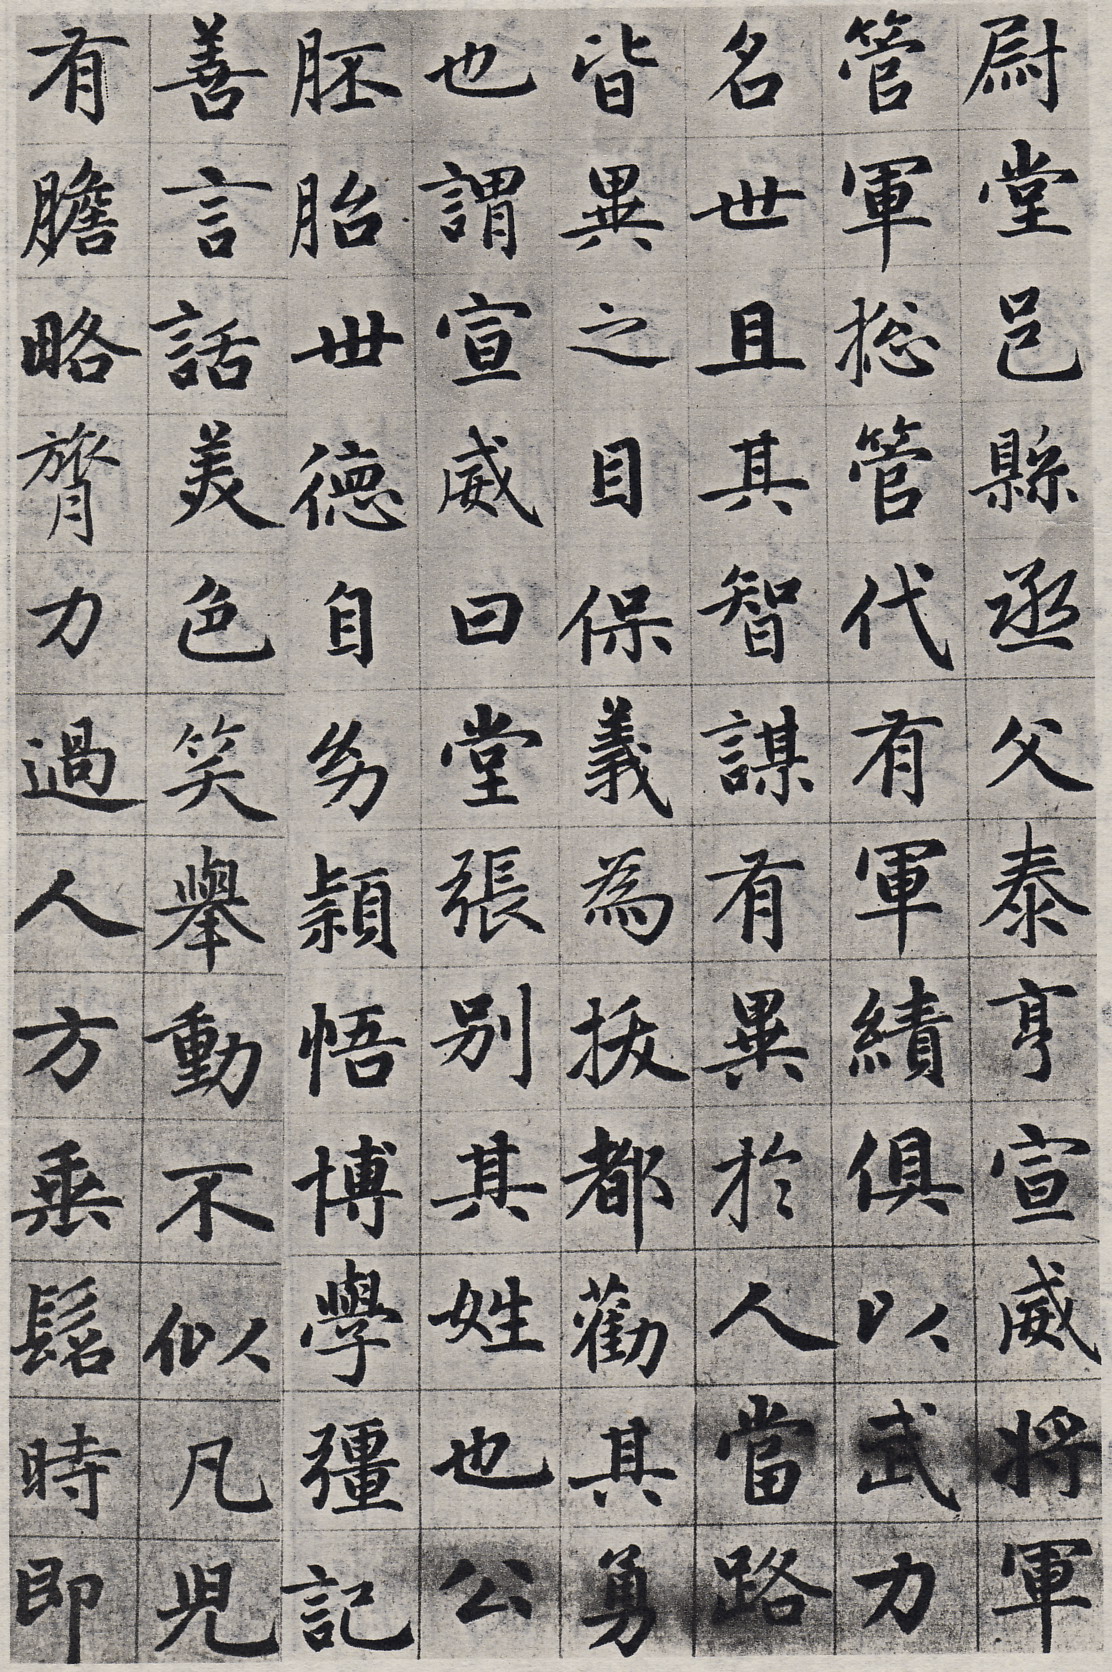 尉堂邑縣丞父泰亨宣威将軍
管軍揔管代有軍績俱以武力
名世且其智謀有異於人當路
皆異之目保義為拔都勸其勇
也謂宣威曰堂張别其姓也公
胚胎世德自幼穎悟博學彊記
善言話美色笑舉動不似凡兒
有膽略膂力過人方垂髫時即